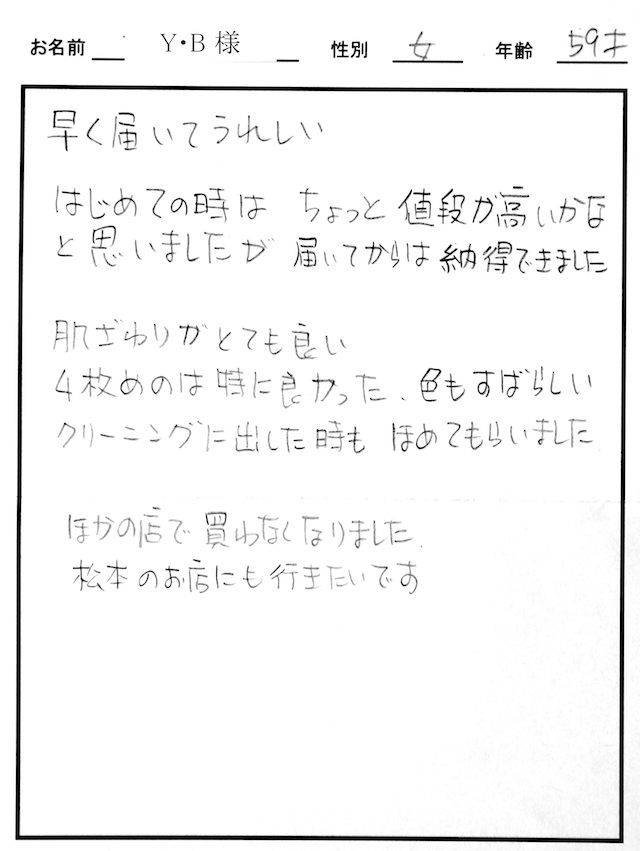 お名前 Y・B 様 性別 女 年齢 59才
早く届いてうれしい
はじめての時は ちょっと 値段が高いかな
と思いましたが 届いてからは 納得できました
肌ざわりがとても良い
4枚めのは特に良かった、色もすばらしい
クリーニングに出した時も ほめてもらいました
ほかの店で買わなくなりました、
松本のお店にも行きたいです